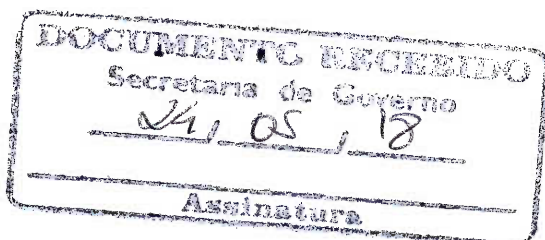 DOCUMENTO RECEBIDO
Secretaria de Governo
24 / 05 / 18
Assinatura